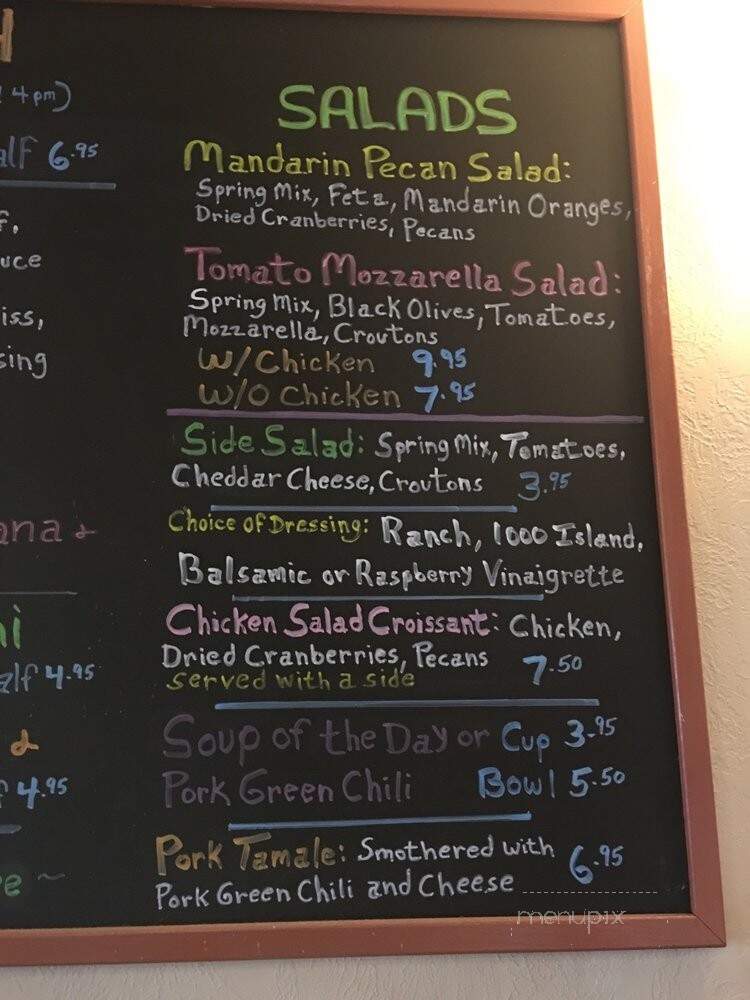 H
4 pm)
alf 6.95
f.
uce
iss,
sing
ana &
ni
alf 4.95
&
4.95
e ~
SALADS
Mandarin Pecan Salad:
Spring Mix, Feta, Mandarin Oranges,
Dried Cranberries, Pecans
Tomato Mozzarella Salad:
Spring Mix, Black Olives, Tomatoes,
Mozzarella, Croutons
W/Chicken 9.95
W/O Chicken 7.95
Side Salad: Spring Mix, Tomatoes,
Cheddar Cheese, Croutons 3.95
Choice of Dressing: Ranch, 1000 Island,
Balsamic or Raspberry Vinaigrette
Chicken Salad Croissant: Chicken,
Dried Cranberries, Pecans 7.50
served with a side
Soup of the Day or Cup 3.95
Pork Green Chili Bowl 5.50
Pork Tamale: Smothered with 6.95
Pork Green Chili and Cheese
menupix